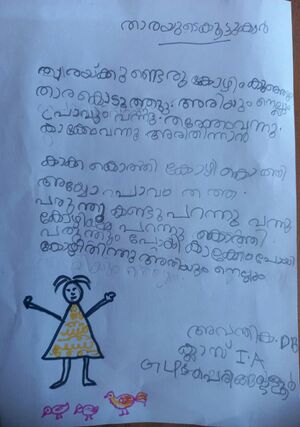 താരയുടെകൂട്ടുകാർ
താരയ്ക്കുണ്ടൊരു കോഴിം
താരകൊടുത്തു അരിയും നെല്ലും
പ്രാവും വന്നു തത്തേംവന്നു
കാക്കേംവന്നു അരിതിന്നാൻ
കാക്ക കൊത്തി കോഴി കൊത്തി
അയ്യോ പാവം തത്ത
പരുന്തു കണ്ടു പറന്നു വന്നു
പറന്നു കൊത്തി
പരുന്തും പോയി കാക്കേം പോയി
കോഴിതിന്നു അരിയും നെല്ലും
അവന്തിക. DB
ക്ലാസ് I.A